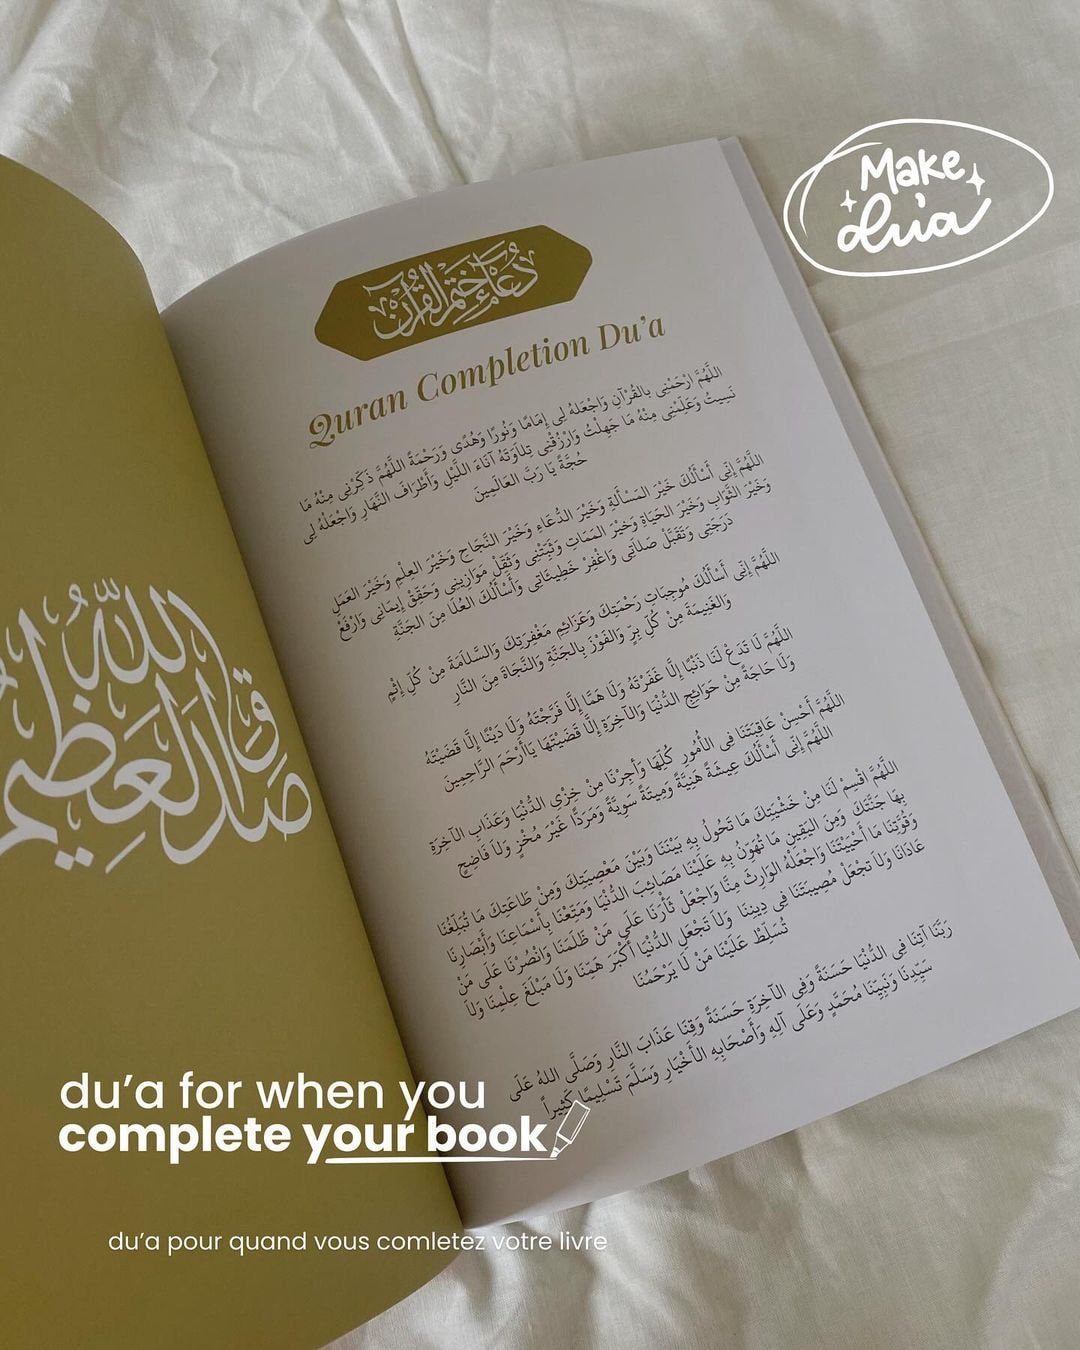 Make
du'a
دُعَاءُ خَتْمِ الْقُرْآنِ
Quran Completion Du'a
اللَّهُمَّ ارْحَمْنِي بِالقُرْآنِ وَاجْعَلْهُ لِي إِمَامًا وَنُورًا وَهُدًى وَرَحْمَةً اللَّهُمَّ ذَكِّرْنِي مِنْهُ مَا
نَسِيتُ وَعَلِّمْنِي مِنْهُ مَا جَهِلْتُ وَارْزُقْنِي تِلاَوَتَهُ آنَاءَ اللَّيْلِ وَأَطْرَافَ النَّهَارِ وَاجْعَلْهُ لِي
حُجَّةً يَا رَبَّ العَالَمِينَ
اللَّهُمَّ إِنِّي أَسْأَلُكَ خَيْرَ المَسْأَلَةِ وَخَيْرَ الدُّعَاءِ وَخَيْرَ النَّجَاحِ وَخَيْرَ العِلْمِ وَخَيْرَ العَمَلِ
وَخَيْرَ الثَّوَابِ وَخَيْرَ الحَيَاةِ وَخَيْرَ المَمَاتِ وَثَبِّتْنِي وَثَقِّلْ مَوَازِينِي وَحَقِّقْ إِيمَانِي وَارْفَعْ
دَرَجَتِي وَتَقَبَّلْ صَلاَتِي وَاغْفِرْ خَطِيئَاتِي وَأَسْأَلُكَ العُلَا مِنَ الجَنَّةِ
اللَّهُمَّ إِنِّي أَسْأَلُكَ مُوجِبَاتِ رَحْمَتِكَ وَعَزَائِمِ مَغْفِرَتِكَ وَالسَّلاَمَةَ مِنْ كُلِّ إِثْمٍ
وَالغَنِيمَةَ مِنْ كُلِّ بِرٍّ وَالفَوْزَ بِالجَنَّةِ وَالنَّجَاةَ مِنَ النَّارِ
اللَّهُمَّ لَا تَدَعْ لَنَا ذَنْبًا إِلَّا غَفَرْتَهُ وَلَا هَمًّا إِلَّا فَرَّجْتَهُ وَلَا دَيْنًا إِلَّا قَضَيْتَهُ
وَلَا حَاجَةً مِنْ حَوَائِجِ الدُّنْيَا وَالآخِرَةِ إِلَّا قَضَيْتَهَا يَاأَرْحَمَ الرَّاحِمِينَ
اللَّهُمَّ أَحْسِنْ عَاقِبَتَنَا فِي الأُمُورِ كُلِّهَا وَأَجِرْنَا مِنْ خِزْيِ الدُّنْيَا وَعَذَابِ الآخِرَةِ
اللَّهُمَّ إِنِّي أَسْأَلُكَ عِيشَةً هَنِيَّةً وَمِيتَةً سَوِيَّةً وَمَرَدًّا غَيْرَ مُخْزٍ وَلاَ فَاضِحٍ
اللَّهُمَّ اقْسِمْ لَنَا مِنْ خَشْيَتِكَ مَا تَحُولُ بِهِ بَيْنَنَا وَبَيْنَ مَعْصِيَتِكَ وَمِنْ طَاعَتِكَ مَا تُبَلِّغُنَا
بِهَا جَنَّتَكَ وَمِنَ اليَقِينِ مَا تُهَوِّنُ بِهِ عَلَيْنَا مَصَائِبَ الدُّنْيَا وَمَتِّعْنَا بِأَسْمَاعِنَا وَأَبْصَارِنَا
وَقُوَّتِنَا مَا أَحْيَيْتَنَا وَاجْعَلْهُ الوَارِثَ مِنَّا وَاجْعَلْ ثَأْرَنَا عَلَى مَنْ ظَلَمَنَا وَانْصُرْنَا عَلَى مَنْ
عَادَانَا وَلاَ تَجْعَلْ مُصِيبَتَنَا فِي دِينِنَا وَلاَ تَجْعَلِ الدُّنْيَا أَكْبَرَ هَمِّنَا وَلَا مَبْلَغَ عِلْمِنَا وَلاَ
تُسَلِّطْ عَلَيْنَا مَنْ لَا يَرْحَمُنَا
رَبَّنَا آتِنَا فِي الدُّنْيَا حَسَنَةً وَفِي الآخِرَةِ حَسَنَةً وَقِنَا عَذَابَ النَّارِ وَصَلَّى اللهُ عَلَى
سَيِّدِنَا وَنَبِيِّنَا مُحَمَّدٍ وَعَلَى آلِهِ وَأَصْحَابِهِ الأَخْيَارِ وَسَلَّمَ تَسْلِيمًا كَثِيراً
صَدَقَ اللهُ العَظِيم
du'a for when you
complete your book
du'a pour quand vous comletez votre livre